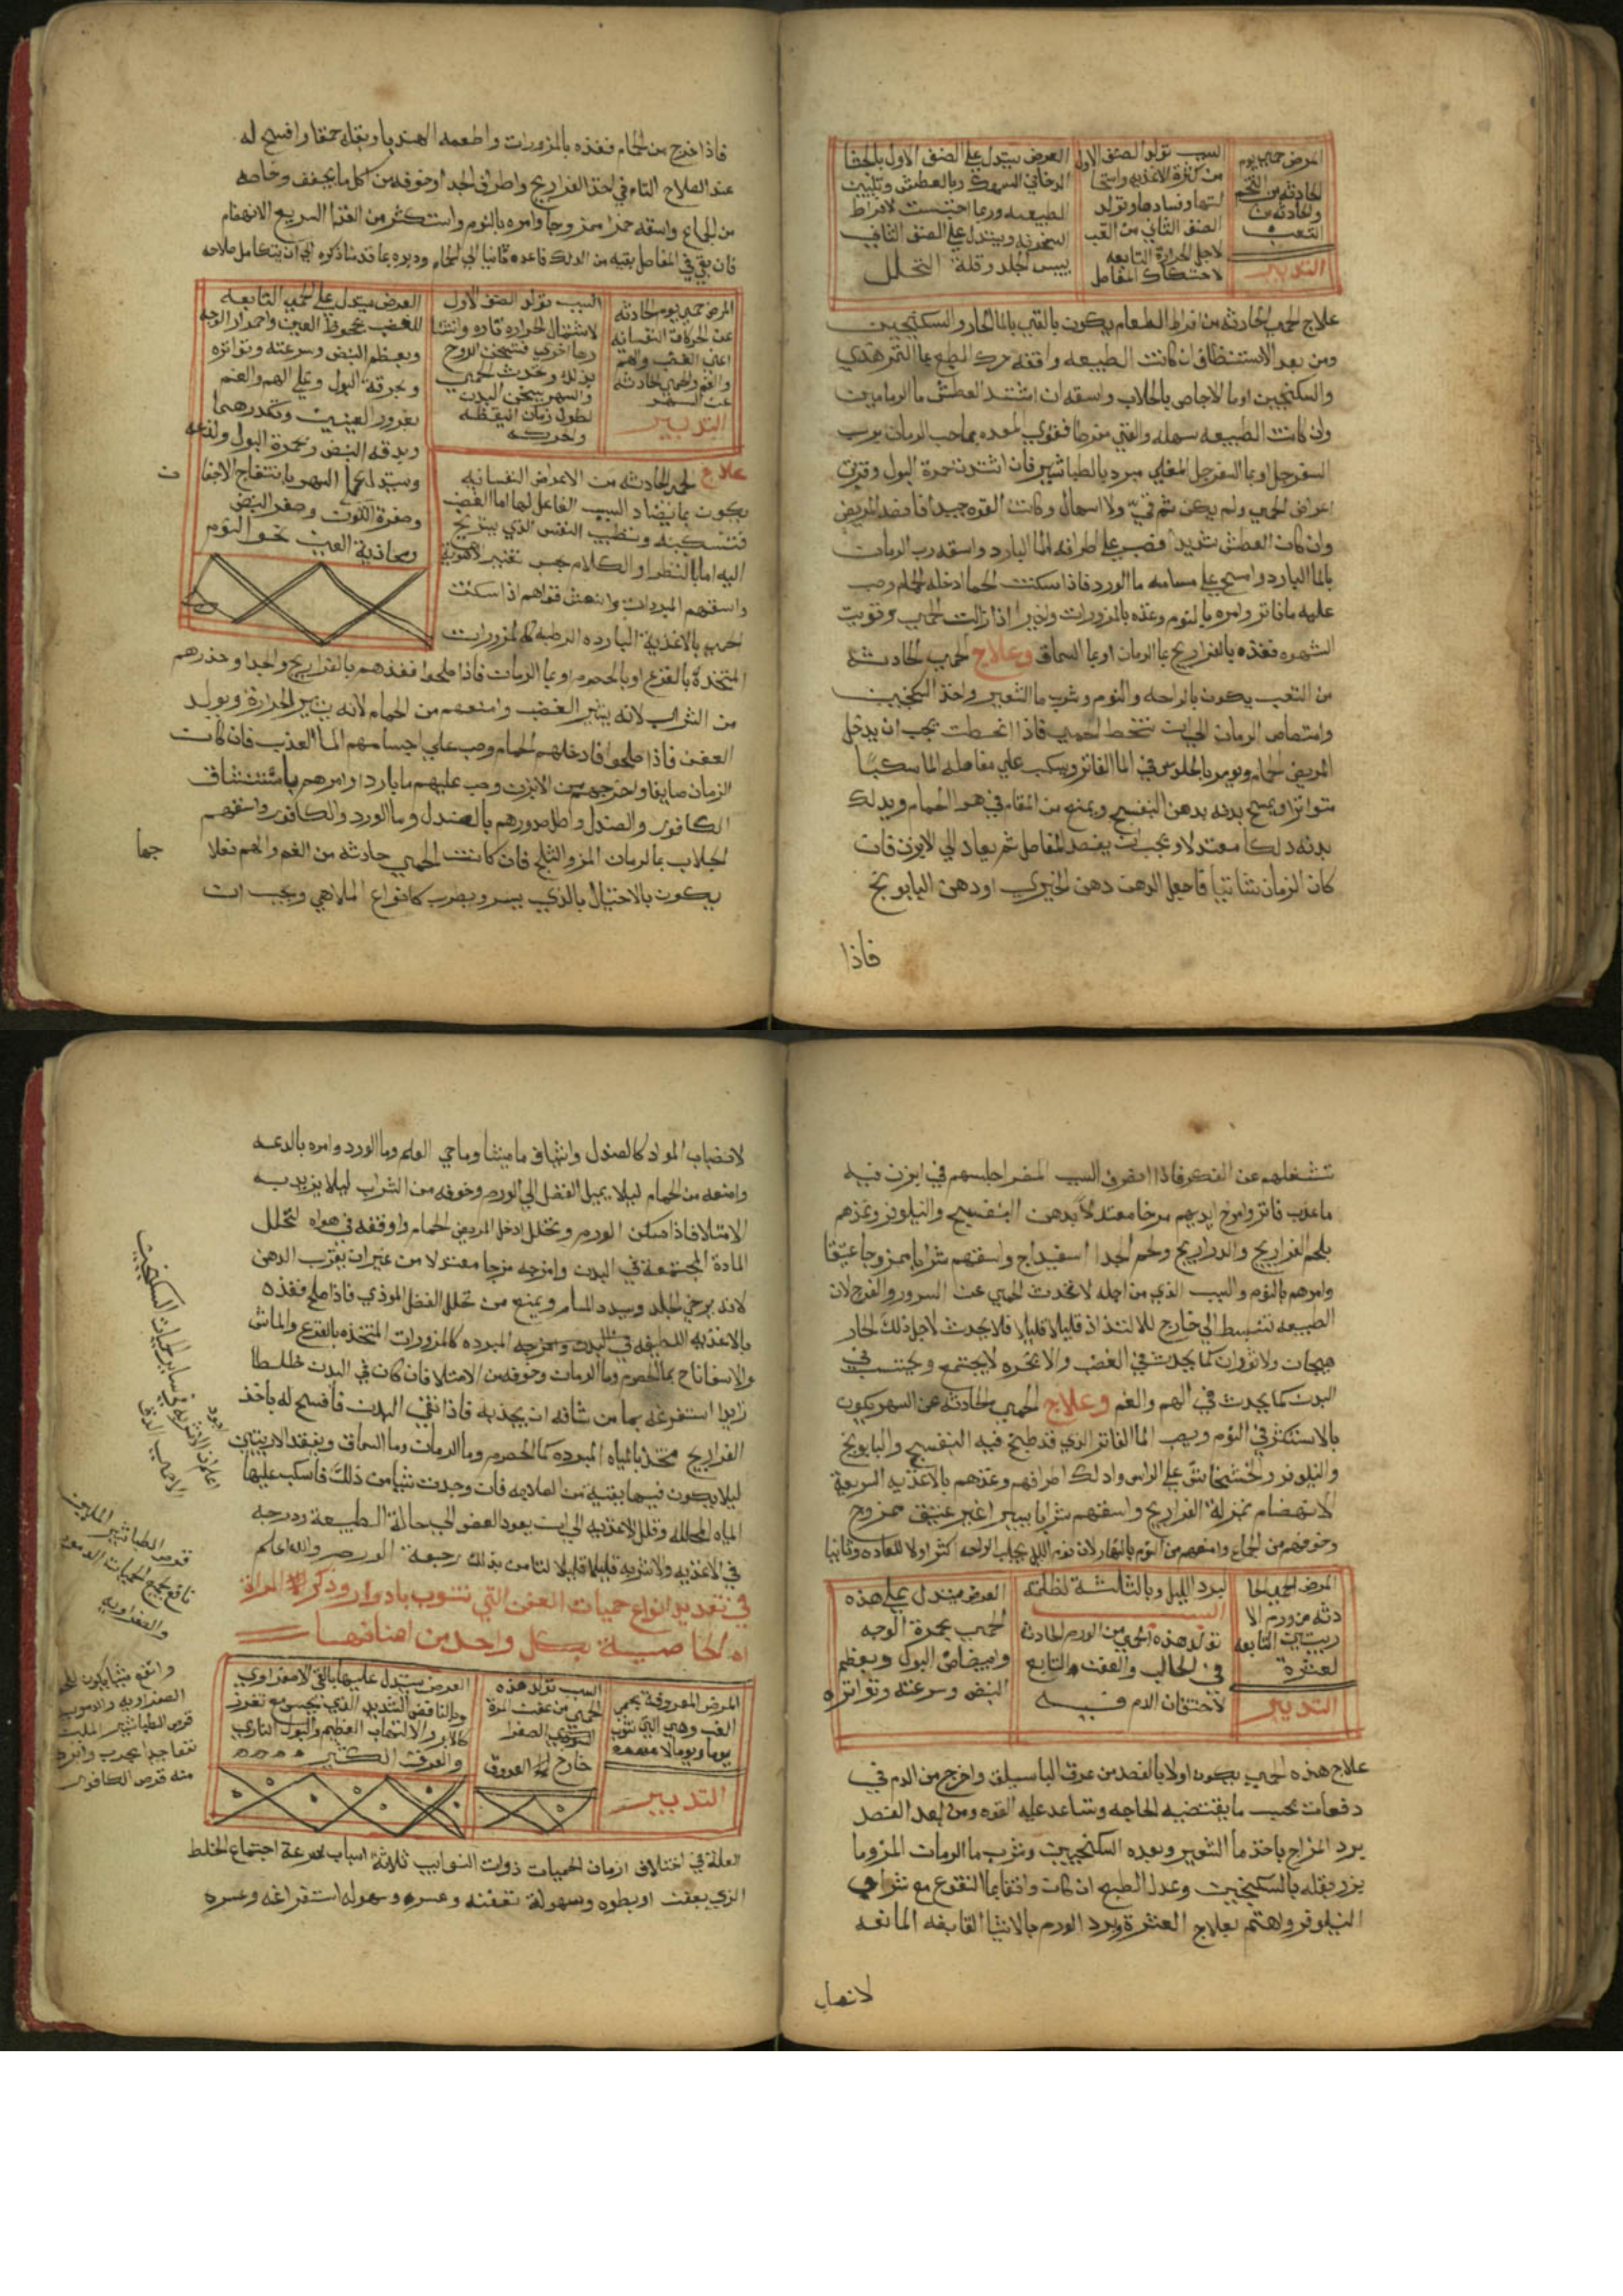 المرض حمى يوم
الحادثه من التخم
والحادثه من
التعب
التدبير
السبب تولد الصنف الاول
من كثرة الاغذيه واستحا
لتها وفسادها وتولد
الصنف الثاني من التعب
لاجل الحرارة التابعه
لاحتكاك المفاصل
العرض يستدل علي الصنف الاول بالجشا
الدخاني السهوك وبالعطش وتليين
الطبيعه وربما احتبست لافراط
السخونه ويستدل علي الصنف الثاني
بيبس الجلد وقلة التحلل
علاج الحمي الحادثه من افراط الطعام يكون بالقي بالما الحار والسكنجبين
ومن بعد الاستنظاف ان كانت الطبيعه واقفه حرك الطبع بما التمر هندي
والسكنجبين او ما الاجاص بالجلاب واسقه ان اشتد العطش ما الرمانين
وان كانت الطبيعه سهله والقي مفرطا فقوي المعده بماحب الرمان برب
السفرجل او بما السفرجل المغلي مبرد بالطباشير فان اشتدت حمرة البول وقويت
اعراض الحمي ولم يكن ثم قيّ ولا اسهال وكانت القوه جيده فافصد المريض
وان كان العطش شديدا فصب علي اطرافه الما البارد واسقه رب الرمان
بالما البارد وامسح علي مسامه ما الورد فاذا سكنت الحما ادخله الحمام وصب
عليه ما فاتر وامره بالنوم وغذه بالمزورات واخيرا اذا زالت الحمي وقويت
الشهوه فغذه بالفراريج بما الرمان او بما السماق وعلاج الحمي الحادثة
من التعب يكون بالراحه والنوم وشرب ما الشعير واخذ السكنجبين
وامتصاص الرمان الي ان تنحط الحمي فاذا انحطت يجب ان يدخل
المريض الحمام ويومر بالجلوس في الما الفاتر ويسكب علي مفاصله الما سكبًا
متواترا ويمسح بدنه بدهن البنفسج ويمنع من المقام في هوا الحمام ويدلك
بدنه دلكا معتدلا ويجب ان يقصد المفاصل ثم يعاد الي الابزن فان
كان الزمان شاتيا فاجعل الدهن دهن الخيري او دهن البابونج
فاذا
فاذا خرج من الحمام فغذه بالمزورات واطعمه الهندبا وبقله حمقا وافسح له
عند الصلاح التام في اخذ الفراريج واطراف الجدا وخوفه من كل ما يجفف وخاصه
من الجماع واسقه خمرا ممزوجا وامره بالنوم واستكثر من الغذا السريع الانهضام
فان بقي في المفاصل بقيه من الدلك فاعده ثانيا الي الحمام ودبره بما قدمنا ذكره الي ان يتكامل صلاحه
المرض حمي يوم الحادثه
عن الحركات النفسانه
اعني الغضب والهم
والغم والحمي الحادثه
عن السهر
التدبير
السبب تولد الصنف الاول
لاشتعال الحراره تاره وانتشا
رها اخري فتسخن الروح
بذلك وتحدث الحمي
والسهر يسخن البدن
لطول زمان اليقظه
وتحركه
العرض يستدل علي الحمي التابعه
للغضب بجحوظ العين واحمرار الوجه
وبعظم النبض وسرعته وتواتره
وبحرقة البول وعلي الهم والغم
بغرور العينين وتكدرهما
وبدقه النبض وبحمرة البول ولذعه
ويستدل علي السهر بانتفاخ الاجفا
ن
وصفرة اللون وصغر النبض
ومجاذبة العين نحو النوم
علاج الحمي الحادثه من الاعراض النفسانيه
يكون بما يضاد السبب الفاعل لها اما الغضب
فتسكينه وبتطييب النفس الذي يبتهج
اليه اما بالنظر او الكلام بحسن تغيير لاهويه
واسقهم المبردات وانعش قواهم اذا سكنت
الحمي بالاغذية البارده الرطبه كالمزورات
المتخذة بالقرع او بالحصرم او بما الرمان فاذا صلحوا فغذهم بالفراريج والجدا وحذرهم
من الشراب لانه يثير الغضب وامنعهم من الحمام لانه يثير الحرارة ويولد
العفن فاذا صلحوا فادخلهم الحمام وصب علي اجسامهم الما العذب فان كانت
الزمان صايفا واخرجهم من الابزن وصب عليهم ما بارد او امرهم باستنشاق
الكافور والصندل واطل صدورهم بالصندل وما الورد والكافور واسقهم
الجلاب بما الرمان المز والثلج فان كانت الحمي حادثه من الغم والهم فعلا
جها
يكون بالاحتيال بالذي يسر ويطرب كانواع الملاهي ويجب ان
تشغلهم عن الفكر فاذا انصرف السبب المضر اجلسهم في ابزن فيه
ما عذب فاتر وامرخ ايديهم مرخا معتدلًا بدهن البنفسج والنيلوفر وغذهم
بلحم الفراريج والدراريج ولحم الجدا اسفيداج واسقهم شرابا ممزوجا عتيقا
وامرهم بالنوم والسبب الذي من اجله لا تحدث الحمي عن السرور والفرح لان
الطبيعه تنبسط الي خارج للالتذاذ قليلا قليلا فلا يحدث لاجل ذلك لحار
هيجان ولا ثوران كما يحدث في الغضب والابخره لا يجتمع ويحتبس في
البدن كما يحدث في الهم والغم وعلاج الحمي الحادثه عن السهر يكون
بالاستكثار في النوم وبصب الما الفاتر الذي قد طبخ فيه البنفسج والبابونج
والنيلوفر والخشخاش علي الراس وادلك اطرافهم وغذهم بالاغذيه السريعة
الانهضام بمنزلة الفراريج واسقهم شرابا يسيرا غير عتيق ممزوج
وخوفهم من الجماع وامنعهم من النوم بالنهار لان نوم الليل يجلب الراحه اكثر اولا للعاده وثانيا
المرض الحمي الحا
دثه من ورم الا
ربيتين التابعه
لعثرة
التدبير
لبرد الليل وبالثالثة لظلمته
السبب
تولد هذه الحمي من الورم الحادث
في الحالب والعفن التابع
لاختقان الدم فيه
العرض يستدل علي هذه
الحمي بحمرة الوجه
وابيضاض البول وبعظم
النبض وسرعته وتواتره
علاج هذه الحمي يكون اولا بالفصد من عرق الباسليق واخرج من الدم في
دفعات بحسب ما يقتضيه الحاجه وتساعد عليه القوه ومن بعد الفصد
برد المزاج باخذ ما الشعير وبعده السكنجبين وشرب ما الرمان المز وما
بزر بقله بالسكنجبين وعدل الطبع ان كان واقفا بما النقوع مع شراب
النيلوفر واهتم بعلاج العثرة وبرد الورم بالاشيا القابضه المانعه
لانصباب
لانصباب المواد كالصندل واشياف ماميثا وماحي العلم وما الورد وامره بالدعه
وامنعه من الحمام ليلا يميل الفضل الي الورم وخوفه من الشراب ليلا يزيد به
الامتلا فاذا سكن الورم وتحلل ادخل المريض الحمام واوقفه في هواه لتحلل
المادة المجتمعة في البدن وامزجه مزجا معتدلا من غير ان يقرب الدهن
لانه يرخي الجلد ويسدد المسام ويمنع من تحلل الفضل الموذي فاذا صلح فغذه
بالاغذيه اللطيفه في البدن المبرده كالمزورات المتخذه بالقرع والماش
والاسفاناخ بما الحصرم وما الرمان وخوفه من الامتلا فان كان في البدن خلطا
زايدا استفرغه بما من شانه ان يجذبه فاذا نقي البدن فافسح له باخذ
الفراريج متخذ بالمياه المبرده كما الحصرم وما الرمان وما السماق ويفقد الاربيتين
ليلا يكون فيهما بقية من الصلابه فان وجدت شيا من ذلك فاسكب عليها
المياه المحلله وقلل الاغذيه الي ان يعود العضو الي حالة الطبيعة ودرجه
في الاغذيه والاشربه قليلا قليلا لتامن بذلك رجعة الورم والله اعلم
في تعديد انواع حميات العفن التي تنوب بادوار وذكر المراة
الخاصية بكل واحد من اصنافها
المرض المعروفة بحمي
الغب وهي التي تنوب
يوما ويوما لا
التدبير
السبب تولد هذه
الحمي من عفن المرة
الصفرا
خارج العروق
العرض يستدل عليها بالقي الاصفراوي
وبالنافض الشديد الذي يحس مع تغرز
كالابر والالتهاب العظيم والبول الناري
والعرق الكثير
العلة في اختلاف ازمان الحميات ذوات النوايب ثلاثة اسباب سرعة اجتماع الخلط
الذي يعفن او بطوه وسهولة تعفنه وعسره وسهوله استفراغه وعسره
قرص الطباشير الملين
نافع لجميع الحميات الدمويه
والصفراويه
الصفراويه والدمويه
قرص الطباشير الملين
منه قرص الكافور